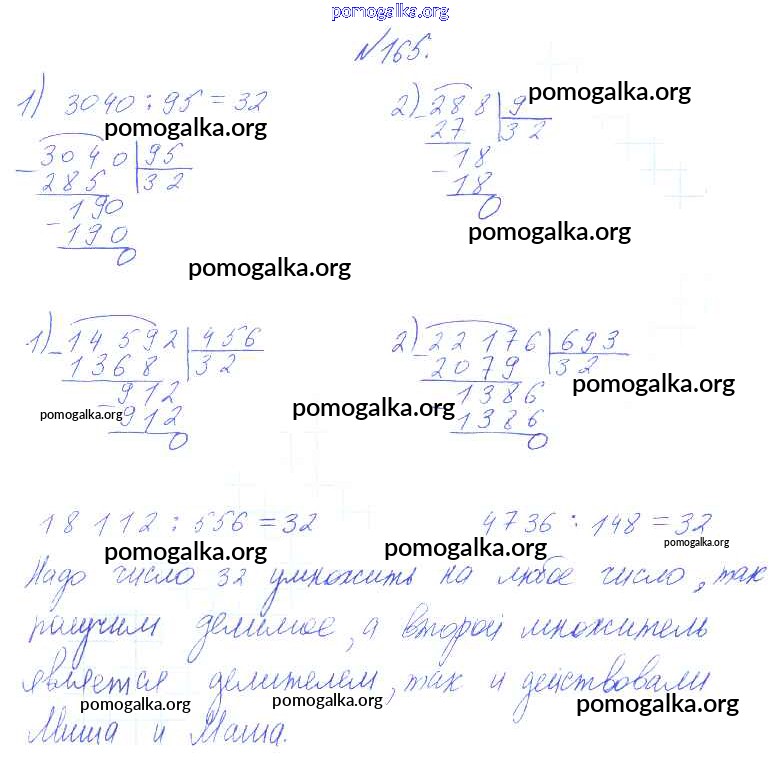 pomogalka.org
№165.
1) 3040 : 95 = 32
2) 288 9
pomogalka.org
pomogalka.org
27 32
3040 95
- 18
- 285 32
18
190
0
pomogalka.org
- 190
0
pomogalka.org
1) 14592 456
2) 22176 693
- 1368 32
- 2079 32
912
1386
pomogalka.org
- 912
1386
pomogalka.org
pomogalka.org
0
0
18112 : 556 = 32
4736 : 148 = 32
pomogalka.org
pomogalka.org
pomogalka.org
Надо число 32 умножить на любое число, так
получим делимое, а второй множитель
является делителем, так и действовали
pomogalka.org
pomogalka.org
pomogalka.org
Миша и Маша.